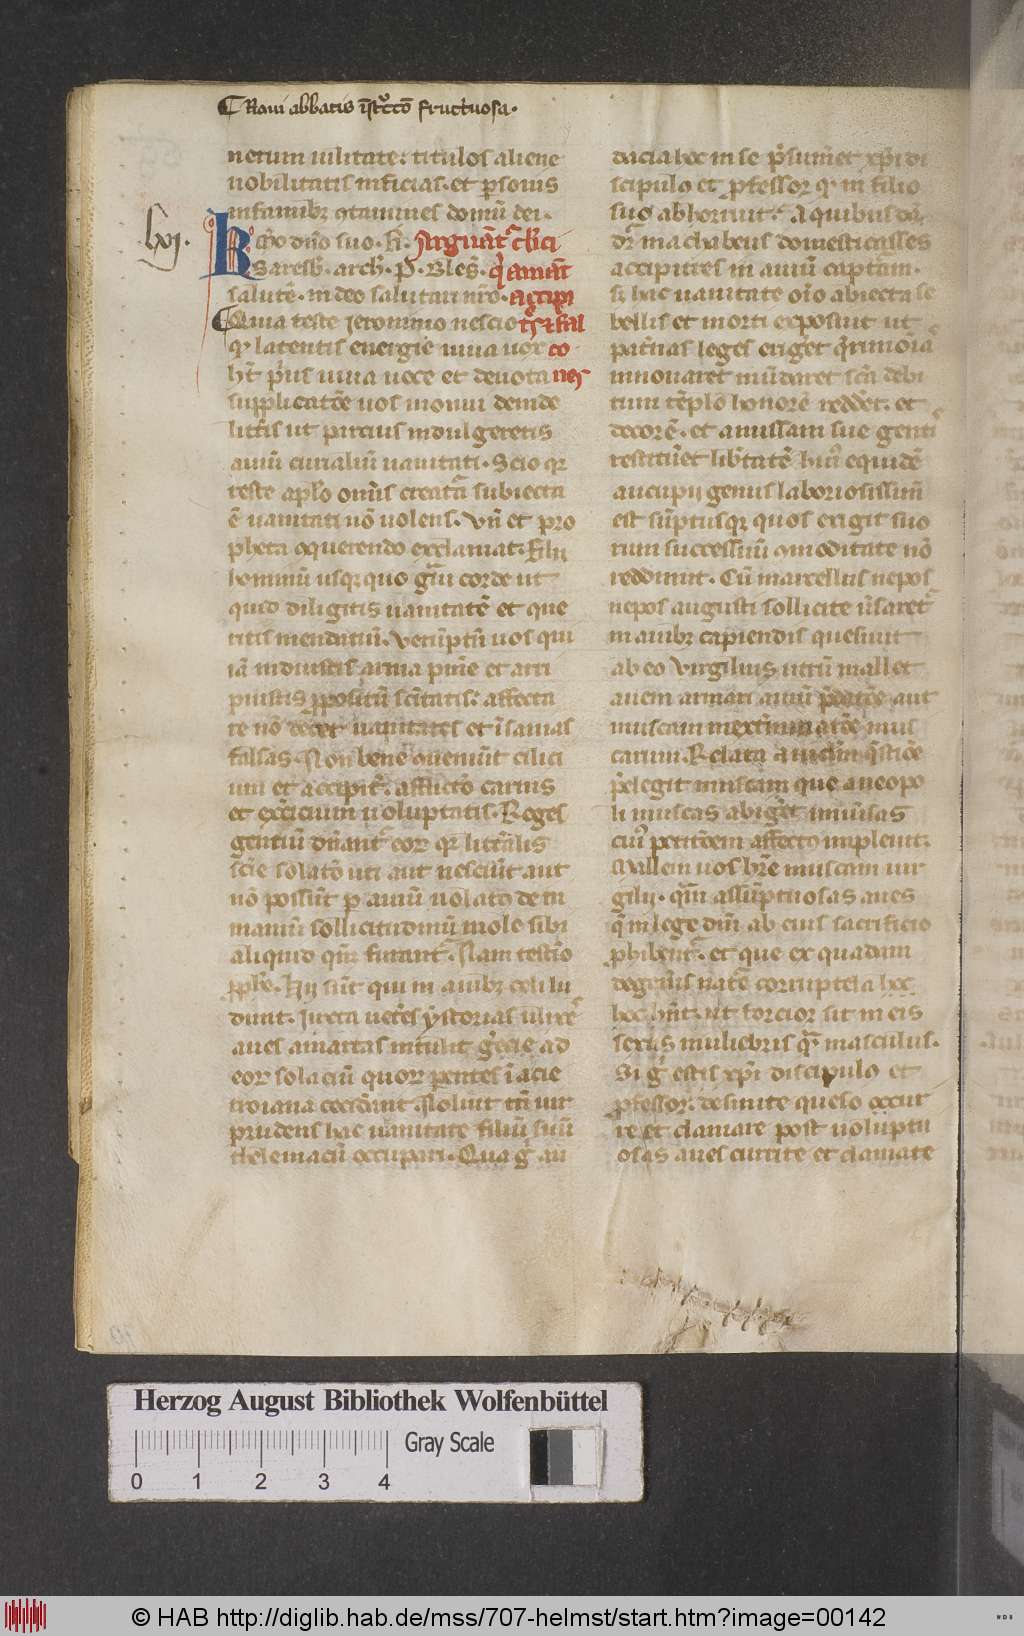 Raui abbatis īstͨcō fructuosa.
nerum uilitate: titulos aliene
nobilitatis inficias. et ꝑsonis
infamibꝫ ꝯtamines domū dei.
lxj.
R
co dno suo. H. Arguūt cl̄ici
Saresb̄. arch̄. P. Bles̄. q̄ amāt
salutē. in deo salutari nr̄o. accipi
Quia teste jeronimo nescio t̄s ⁊ fal
qͥ latentis energie uiua uox co
ht̄ pͥus uiua uoce et deuota nes
supplicatōe uos monui deinde
litt̄is ut parcius indulgeretis
auiū curialiū uanitati. Scio qꝛ
teste apl̄o om̄is creatᷓa subiecta
ē uanitati nō uolens. Vn̄ et pro
pheta ꝯquerendo exclamat. filii
hominū usqꝫ quo gͣui corde ut
quid diligitis uanitatē et que
ritis mendatiū. Verūptn̄ uos qui
iā induistis arma pn̄ie et arri
puistis ꝓpositū sc̄itatis: affecta
re nō decet uanitates et īsanias
falsas. Non bene ꝯueniūt cilici
um et accipit̄. afflictō carnis
et exͨicium uoluptatis. Reges
gentiū dn̄ant᷑ eoꝝ qꝛ litt̄alis
scīe solatō uti aut nesciūt aut
nō possūt ꝑ auiū uolatū de in
maniū sollicitudinū mole sibi
aliquid qn̄qꝫ furant᷑. Nam testīo
ꝓph̄e. Hij sūt qui in auibꝫ celi lu
dunt. Juxta uet̄es ystorias ulixeˢ
aues amaricas intulit gͣecie ad
eoꝝ solaciū quoꝝ parentes ī acie
troiana cecidͤant. Noluit tn̄ uir
prudens hac uanitate filiū suū
thelemaciū occupari. Qua gͦ au
dacia hoc in se pͤsumͤet xp̄i di
scipulo et ꝓfessor qͥ in filio
suo abhorruit. A quibusdā
dr̄ machabeus domesticasse
accipitres in auiū captōm.
sꝫ hac uanitate oīo abiecta se
bellis et morti exposuit ut
pat̄nas leges erigͤet cͤrimoiaˢ
innouaret mūdaret sc̄a debi
tum tēplo honorē reddͤet. et
decorē. et amissam sue gentiˢ
restituͤet libͤtatē. huiꝰ equidē
aucupij genus laboriosissimū
est sūptusqꝫ quos exigit suo
rum successiuū ꝯmoditate nō
reddunt. Cū marcellus nepos
nepos augusti sollicite uͤsaret᷑
in auibꝫ capiendis quesiuit
ab eo virgilius utrū mallet
auem armari auiū pͤdatōe aut
muscam in extͤminatōe mus
carum. Relata
pͤelegit muscam que a neopo
li muscas abigͤet uniuͤsas
cuiꝰ petitōem affectū impleuit.
Mallem uos hr̄e muscam uir
gilii. qͣm assūptuosas aues
q̄ in lege dn̄i ab eius sacrificio
ꝓhibent᷑. et que ex quadam
degeͤis nat᷑e corruptela hoc
hoc hn̄t. ut forcior sit in eis
sexus muliebris qͣm masculus.
Si gͦ estis xp̄i discipulo et
ꝓfessor. desinite queso occur
re et clamare post uoluptu
osas aues currite et clamate
Herzog August Bibliothek Wolfenbüttel
Gray Scale
0 1 2 3 4
© HAB http://diglib.hab.de/mss/707-helmst/start.htm?image=00142
WDB